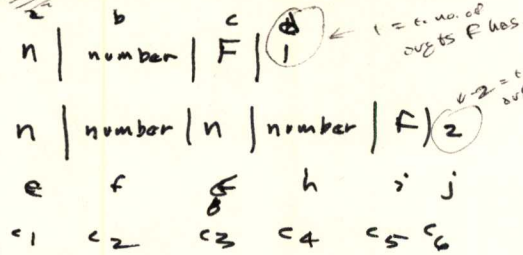 a b c d
n | number | F | 1 ← 1 = t. no. of
args F has
n | number | n | number | F) 2 2 = t
e f g h i j
c1 c2 c3 c4 c5 c6